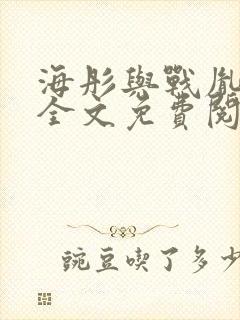 海彤與戰胤
全文免費閱
豌豆喫了多少